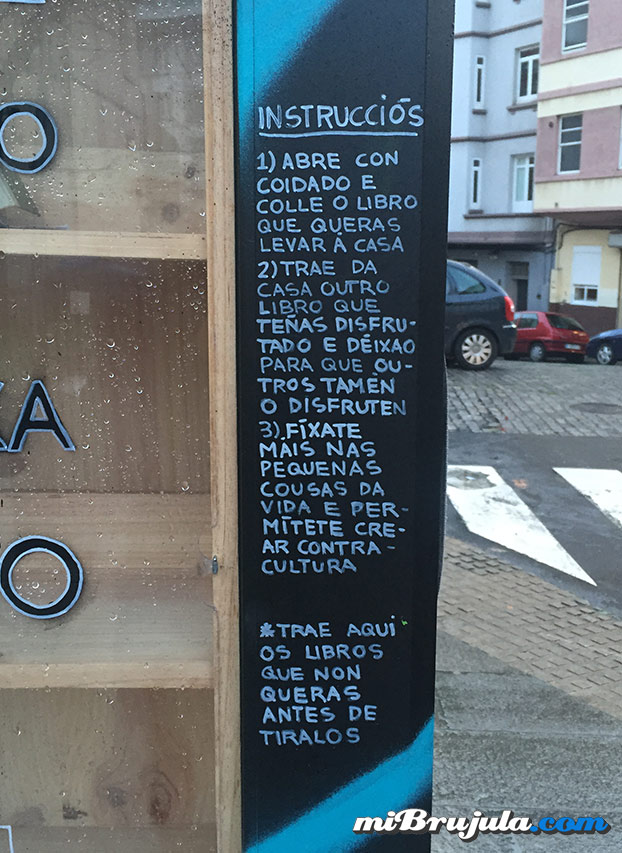 O
XA
O
INSTRUCCIÓS
1) ABRE CON
COIDADO E
COLLE O LIBRO
QUE QUERAS
LEVAR Á CASA
2) TRAE DA
CASA OUTRO
LIBRO QUE
TEÑAS DISFRU-
TADO E DÉIXAO
PARA QUE OU-
TROS TAMÉN
O DISFRUTEN
3) FÍXATE
MAIS NAS
PEQUENAS
COUSAS DA
VIDA E PER-
MÍTETE CRE-
AR CONTRA-
CULTURA
*TRAE AQUI
OS LIBROS
QUE NON
QUERAS
ANTES DE
TIRALOS
miBrujula.com